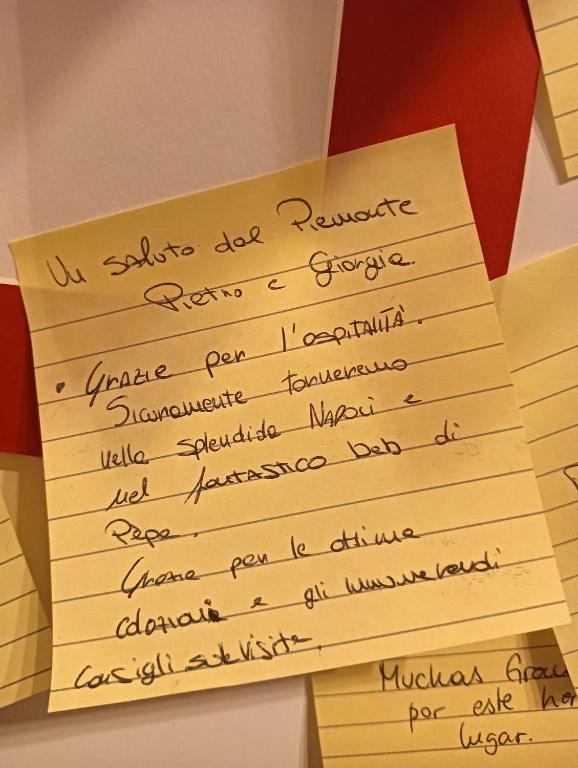 Un saluto dal Piemonte
Pietro e Giorgia.
• Grazie per l'OSPITALITÀ.
Sicuramente torneremo
nella splendida NAPOLI e
nel fantastico beb di
Pepe.
Grazie per le ottime
colazioni e gli innumerevoli
consigli sulle visite.
Muchas Grac
por este her
lugar.